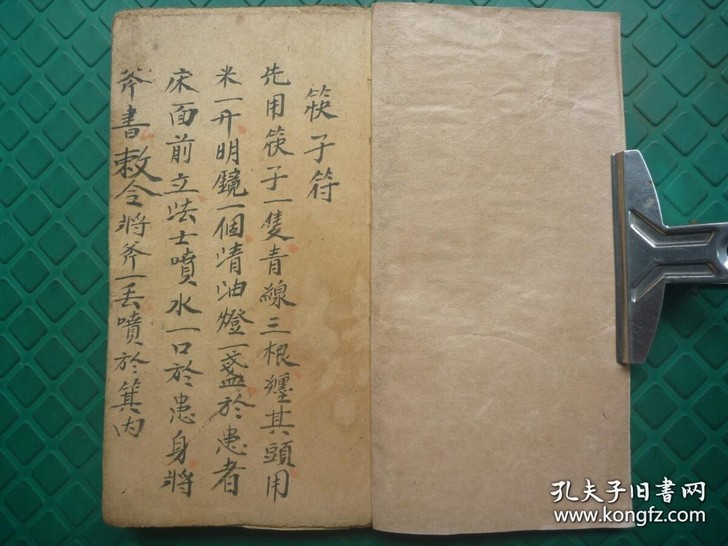 筷子符
先用筷子一隻青線三根纏其頭用
米一升明鏡一個清油燈一盞於患者
床面前立法士噴水一口於患身將
斧書敕令將斧一丟噴於箕内
孔夫子旧书网
www.kongfz.com